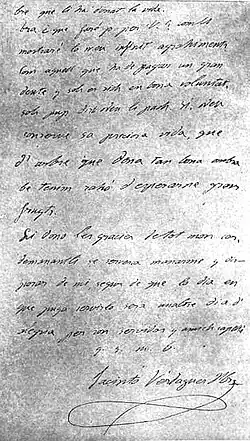 bre que li ha donat la vida.
bra que fare jo per V. i com li
mostraré lo meu infinit agrahiment,
com aquell que ha de pagar un gran
deute y sols es rich en bona voluntat,
sols puch dir Deu li pach. Si Deu
conserva sa preciosa vida, que
d'arbre que dona tan bona ombra
be tenim rahó d'esperarne grans
fruyts.
Li dono les gracies de tot mon cor,
demanantli se serveixa manarme y dis-
posar de mi segur de que lo dia en
que puga servirlo sera un altre dia d'
alegria per son servidor y amich capellá
q. s. m. b.
Jacinto Verdaguer Pbre